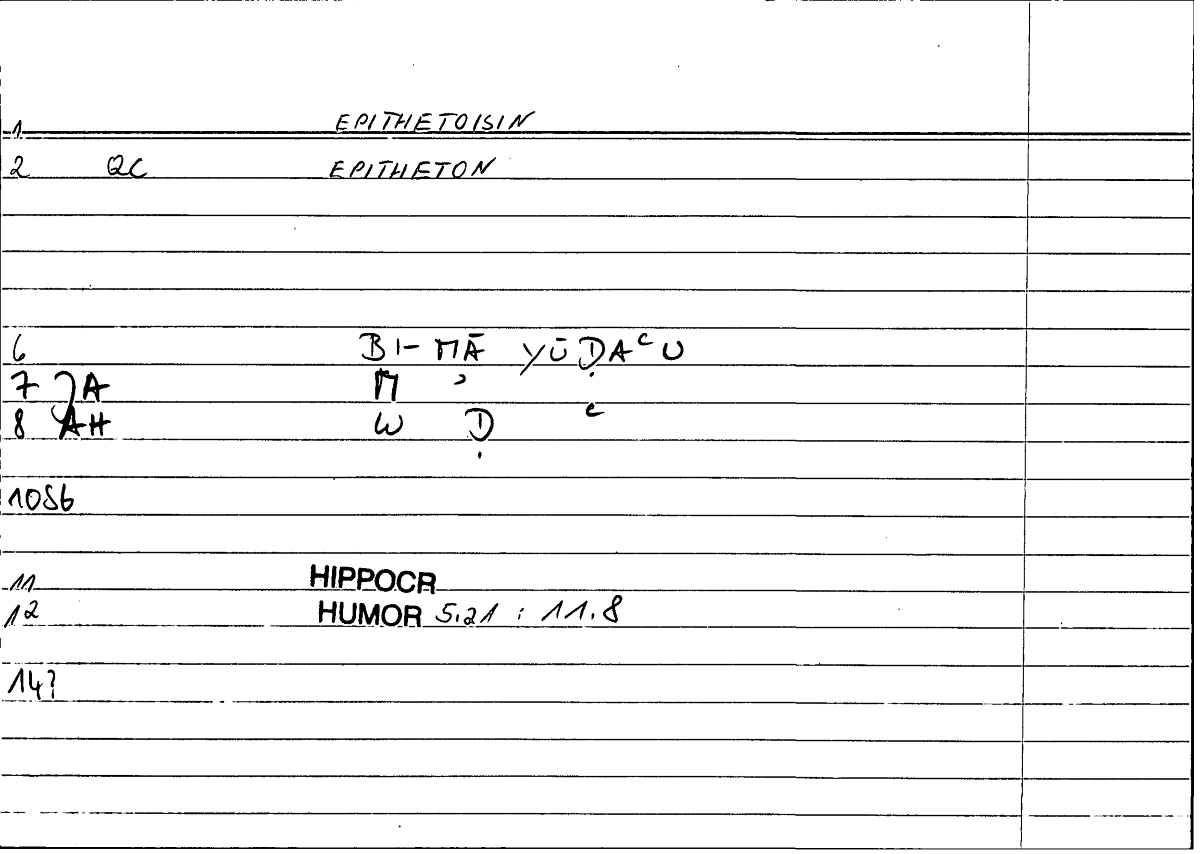 1 EPITHETOISIN
2 QC EPITHETON
6 BI-MĀ YŪḌAʿU
7 A M ʾ
8 AH W Ḍ ʿ
10Sb
11 HIPPOCR
12 HUMOR 5.21 : 11.8
14?